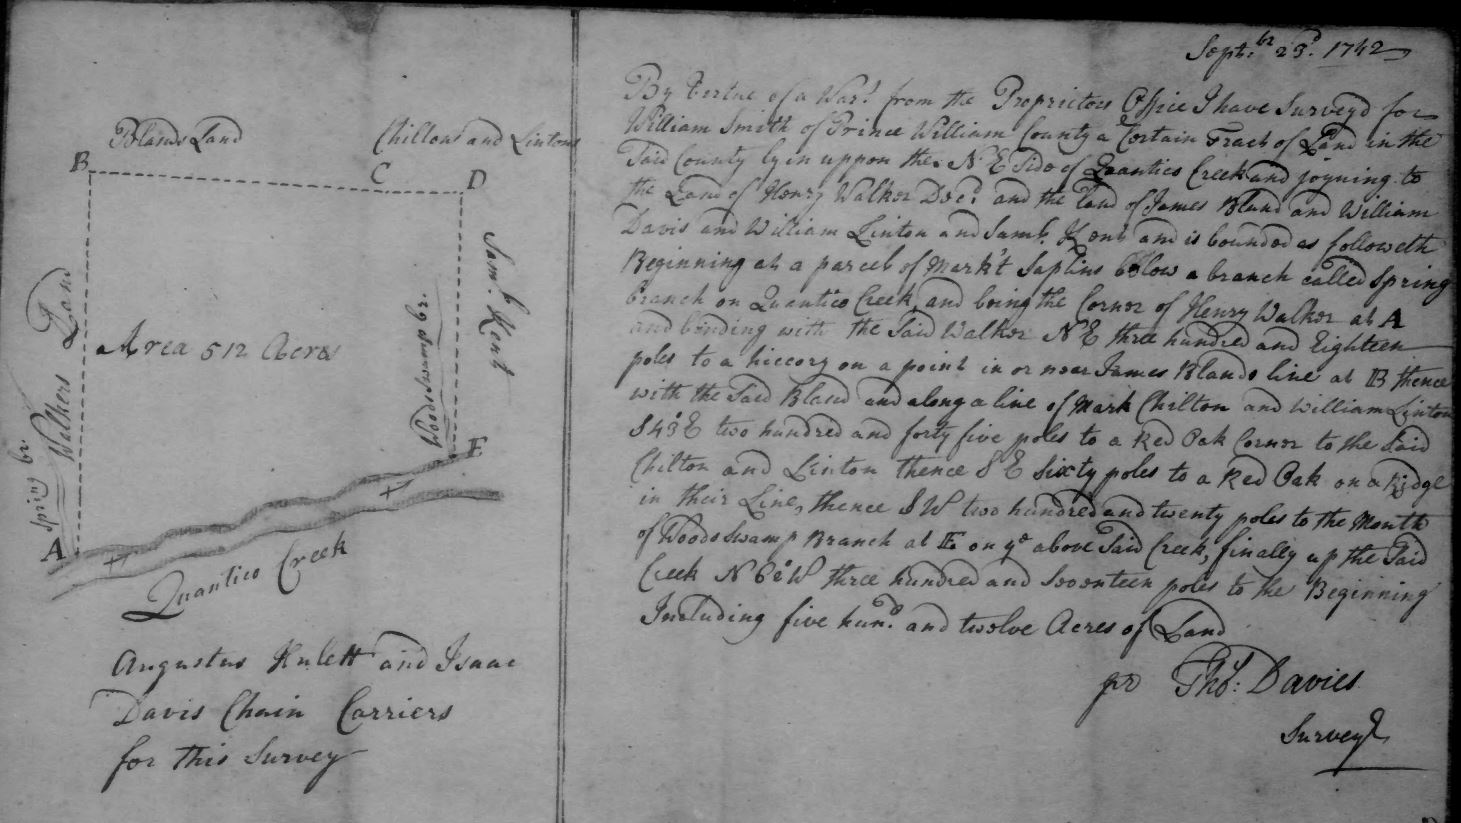 Blands Land
Chiltons and Lintons
B
C
D
Walkers Land
Area 512 Acres
Saml. Kent
Woodsswamp br.
Spring br.
A
E
Quantico Creek
Augustus Hulett and Isaac
Davis Chain Carriers
for this Survey
Sept.br 23d. 1742
By Vertue of a Wart. from the Proprietors Office I have Survey'd for
William Smith of Prince William County a Certain Tract of Land in the
Said County lyin uppon the N E Side of Quantico Creek and joyning to
the Land of Henry Walker Decd. and the land of James Bland and William
Davis and William Linton and Saml. Kent and is bounded as followeth
Beginning at a parcel of Mark't Saplins below a branch called Spring
branch on Quantico Creek, and being the Corner of Henry Walker at A
and binding with the Said Walker N E three hundred and Eighteen
poles to a hiccory on a point in or near James Blands line at B thence
with the Said Bland and along a line of Mark Chilton and William Linton
S 43° E two hundred and forty five poles to a Red Oak Corner to the Said
Chilton and Linton thence S E Sixty poles to a Red Oak on a Ridge
in their Line, thence S W two hundred and twenty poles to the Mouth
of Woods Swamp Branch at E on ye above Said Creek, finally up the Said
Creek N 62° W three hundred and Seventeen poles to the Beginning
Including five hund. and twelve Acres of Land
pr Thos. Davies
Surveyr